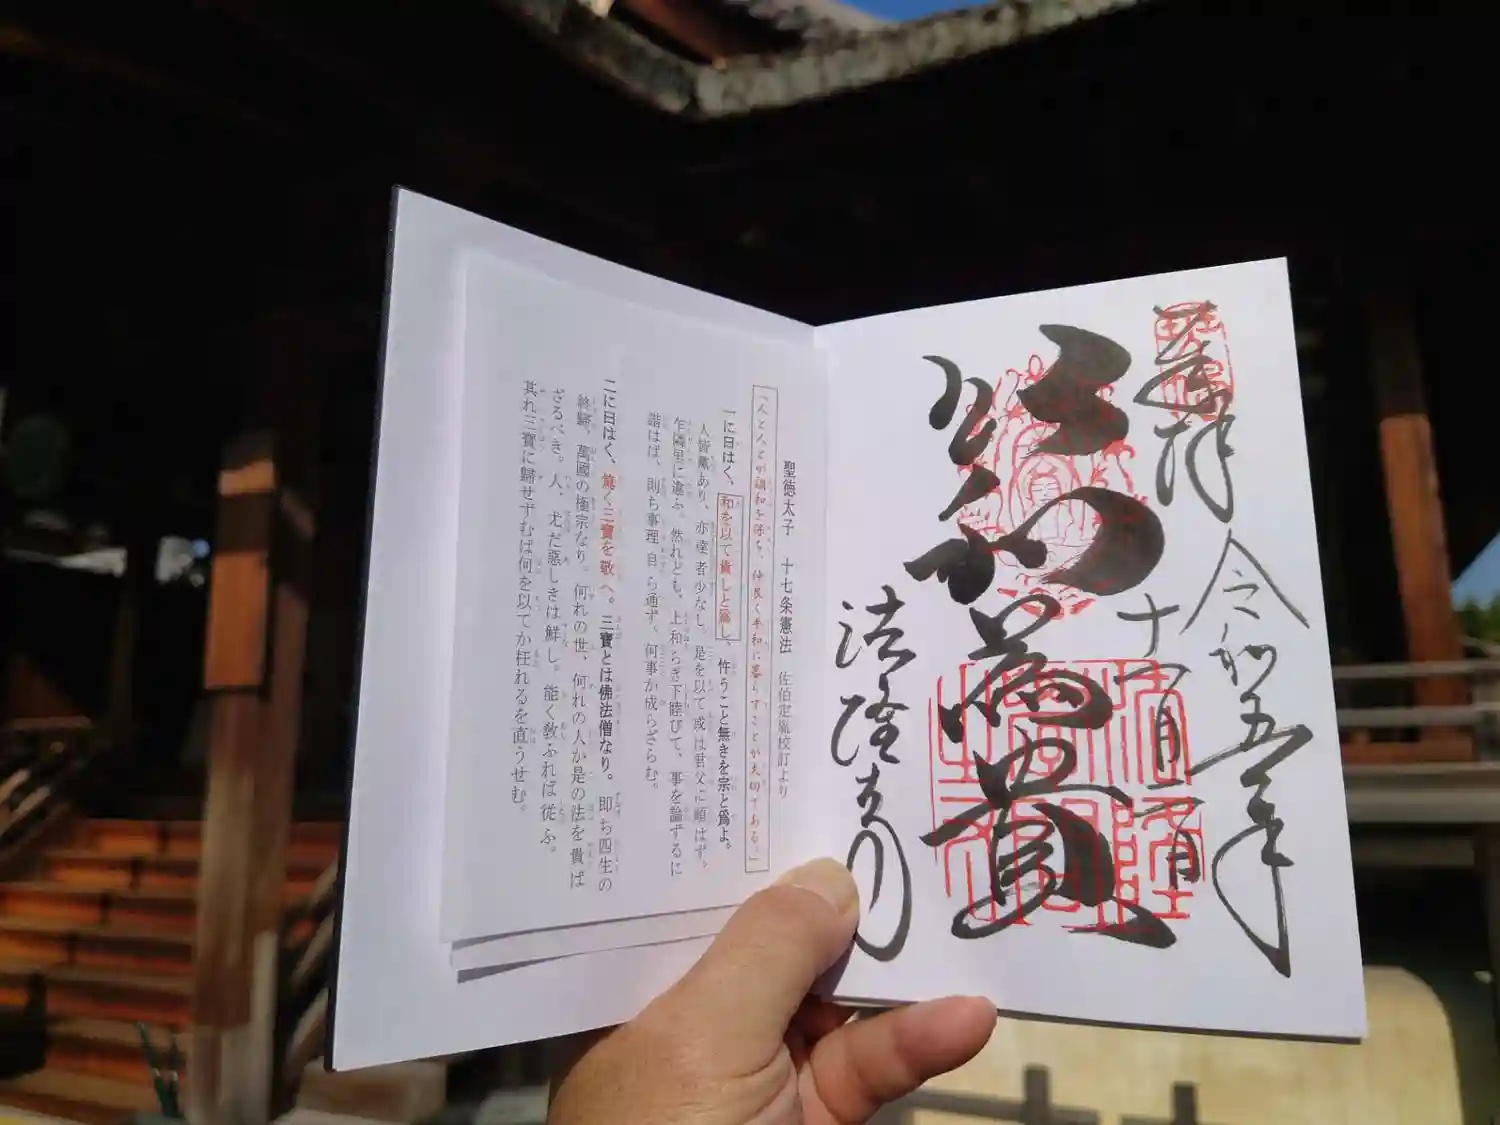 奉拝
令和五年
十一月一日
以和為貴
法隆寺
聖徳太子　十七条憲法　佐伯定胤校訂より
「人と人とが調和を保ち、仲良く平和に暮らすことが大切である。」
一に曰はく、和を以て貴しと爲し、忤うこと無きを宗と爲よ。
人皆黨あり、亦達者少なし。是を以て或は君父に順はず。
乍隣里に違ふ。然れども、上和らぎ下睦びて、事を論ずるに
諧はば、則ち事理自ら通ず、何事か成らざらむ。
二に曰はく、篤く三寶を敬へ。三寶とは佛法僧なり。即ち四生の
終歸、萬國の極宗なり。何れの世、何れの人か是の法を貴ば
ざるべき。人、尤だ惡しきは鮮し。能く敎ふれば從ふ。
其れ三寶に歸せずむば何を以てか枉れるを直うせむ。